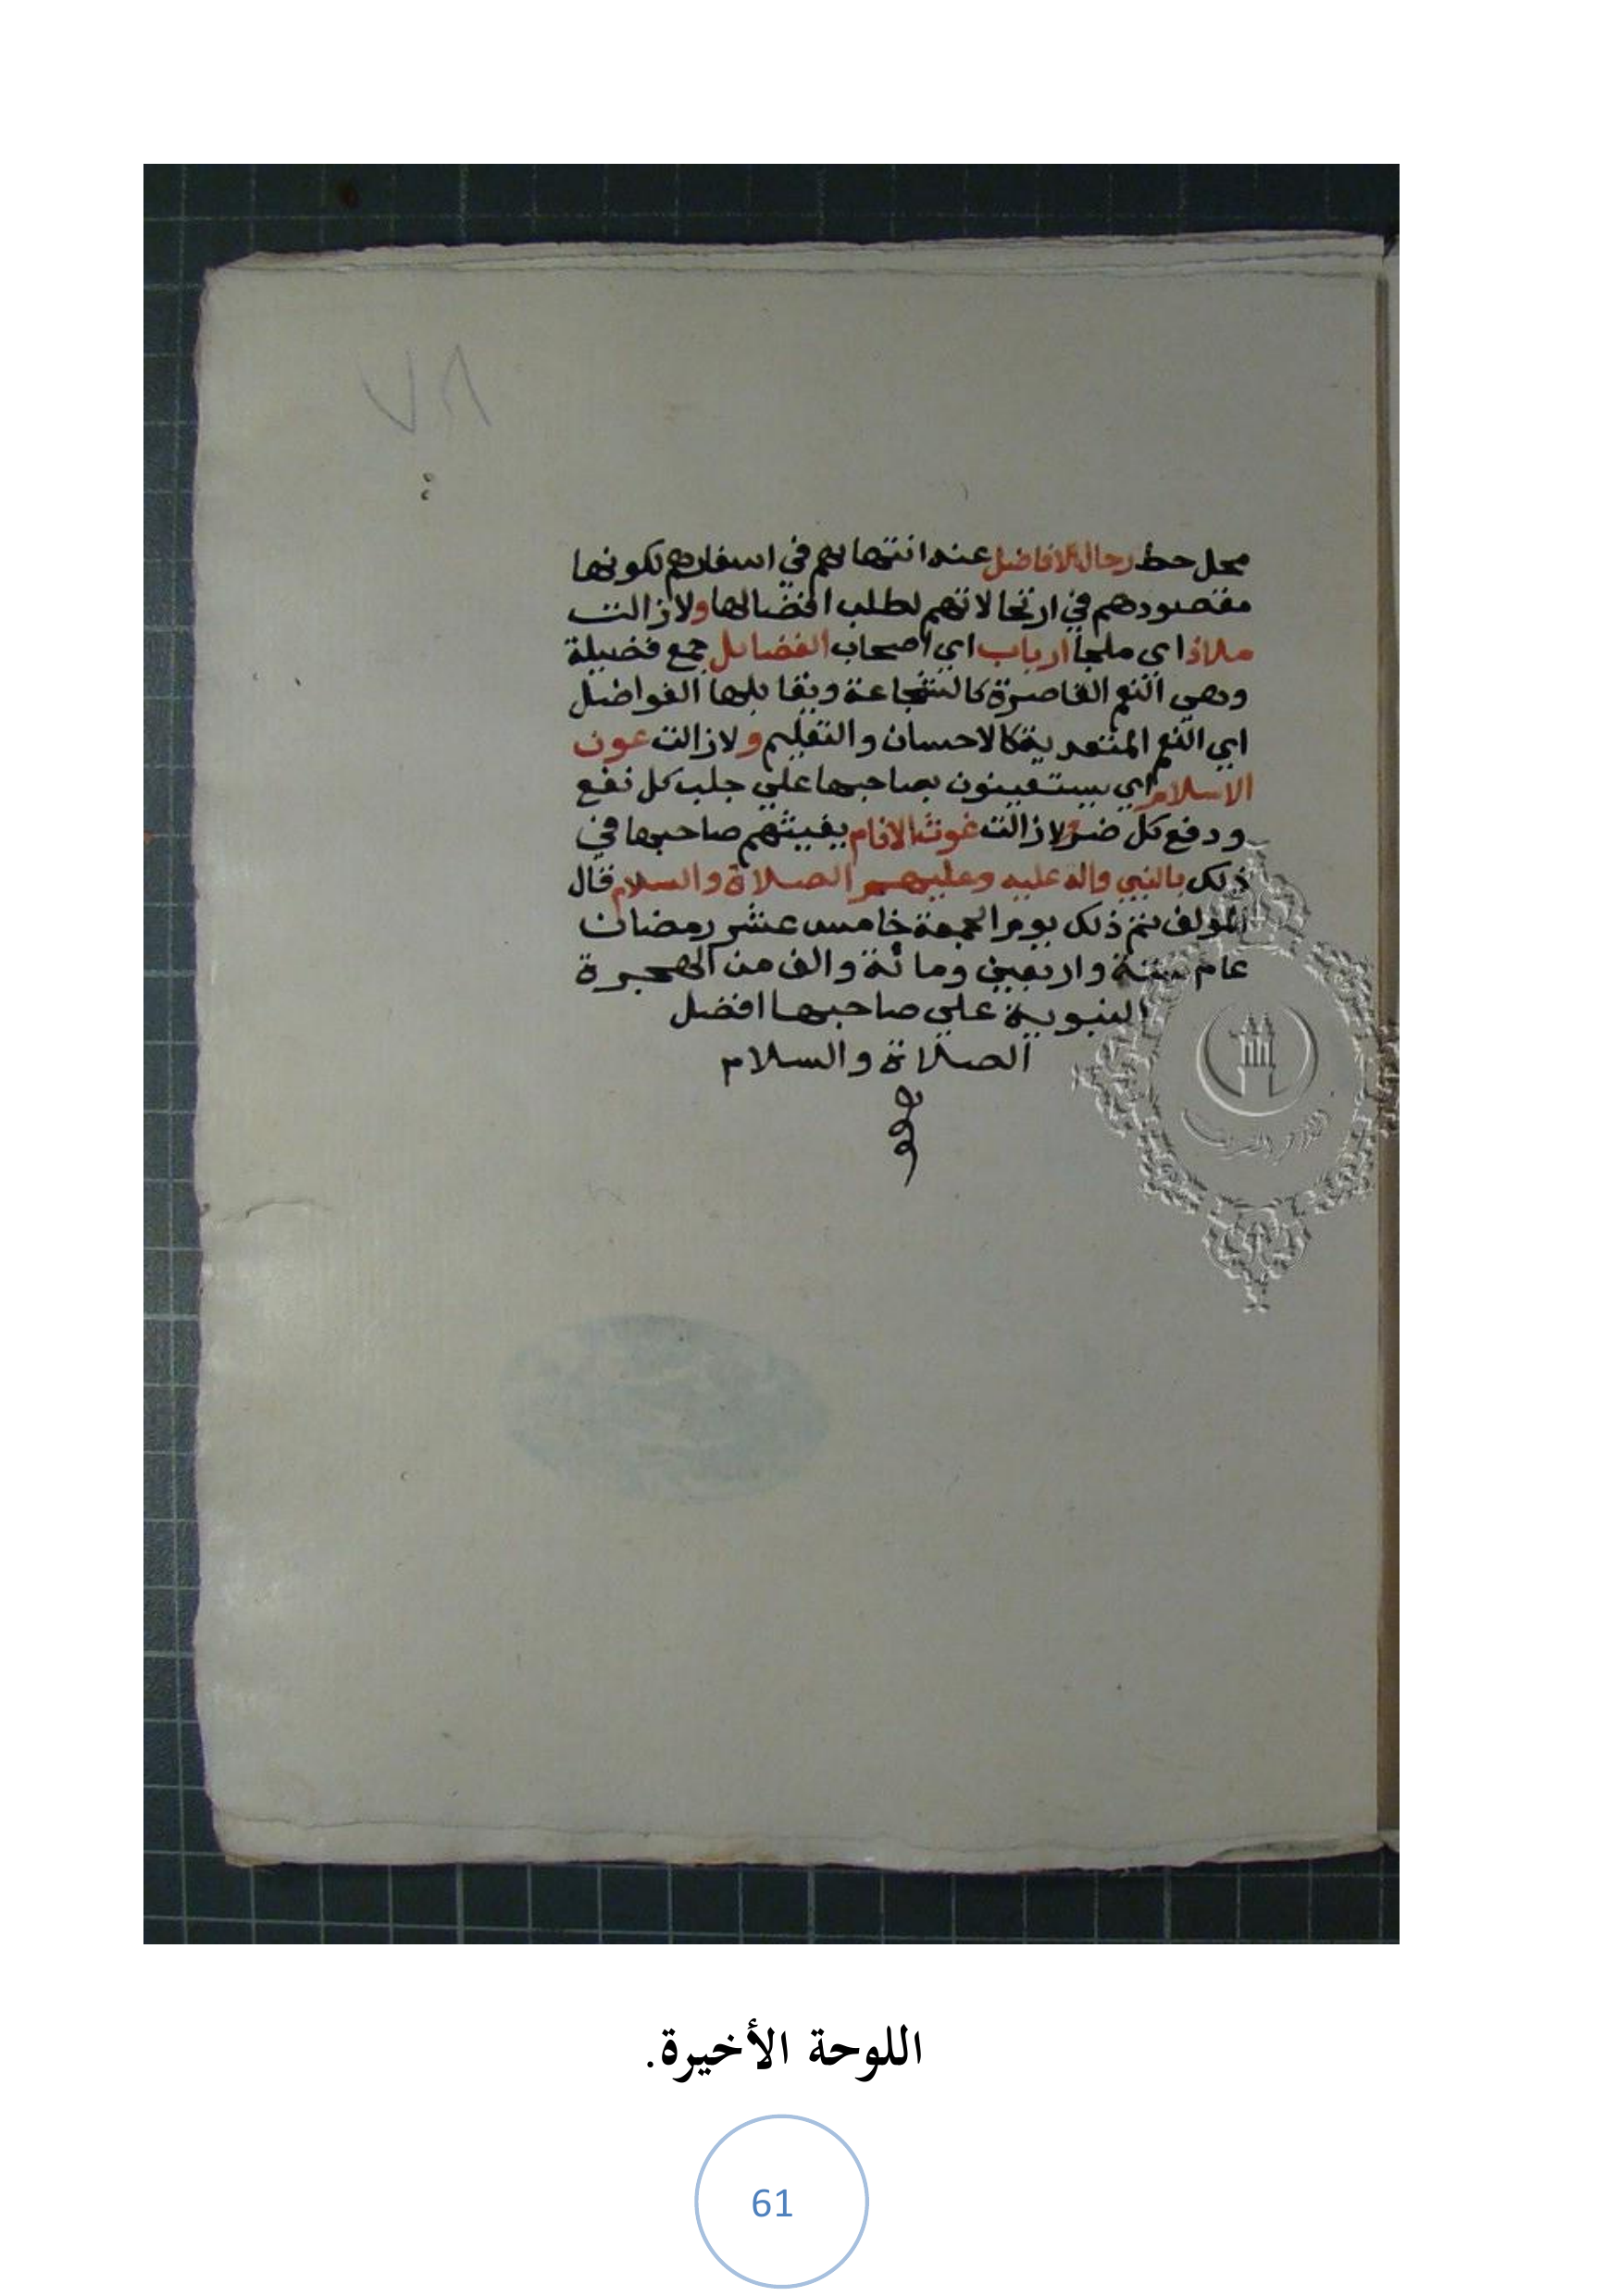 ٧٨
محل حط رحال الافاضل عند انتهايهم في اسفارهم لكونها
مقصودهم في ارتحالاتهم لطلب افضالها ولا زالت
ملاذ اي ملجأ ارباب اي اصحاب الفضايل جمع فضيلة
وهي النعم القاصرة كالشجاعة ويقابلها الفواضل
اي النعم المتعدية كالاحسان والتعليم ولا زالت عون
الاسلام اي يستعينون بصاحبها علي جلب كل نفع
ودفع كل ضر ولا زالت غوث الانام يغيثهم صاحبها في
ذلك بالنبي واله عليه وعليهم الصلاة والسلام قال
المولف تم ذلك يوم الجمعة خامس عشر رمضان
عام ستة واربعين ومائة والف من الهجرة
النبوية علي صاحبها افضل
الصلاة والسلام
اللوحة الأخيرة.
61